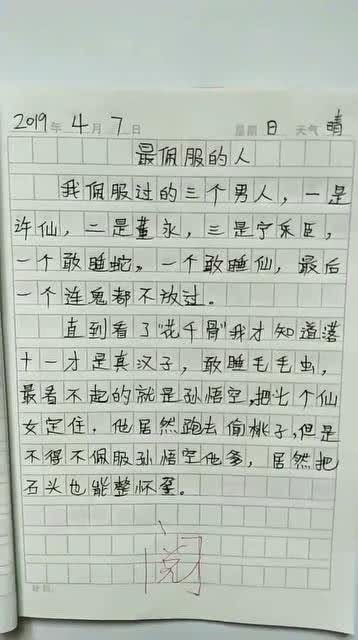 2019年 4月 7日 星期 日 天气 晴
最佩服的人
我佩服过的三个男人，一是
许仙，二是董永，三是宁采臣，
一个敢睡蛇，一个敢睡仙，最后
一个连鬼都不放过。
直到看了"花千骨"我才知道落
十一才是真汉子，敢睡毛毛虫，
最看不起的就是孙悟空，把七个仙
女定住，他居然跑去偷桃子，但是
不得不佩服孙悟空他爹，居然把
石头也能整怀孕。
阅